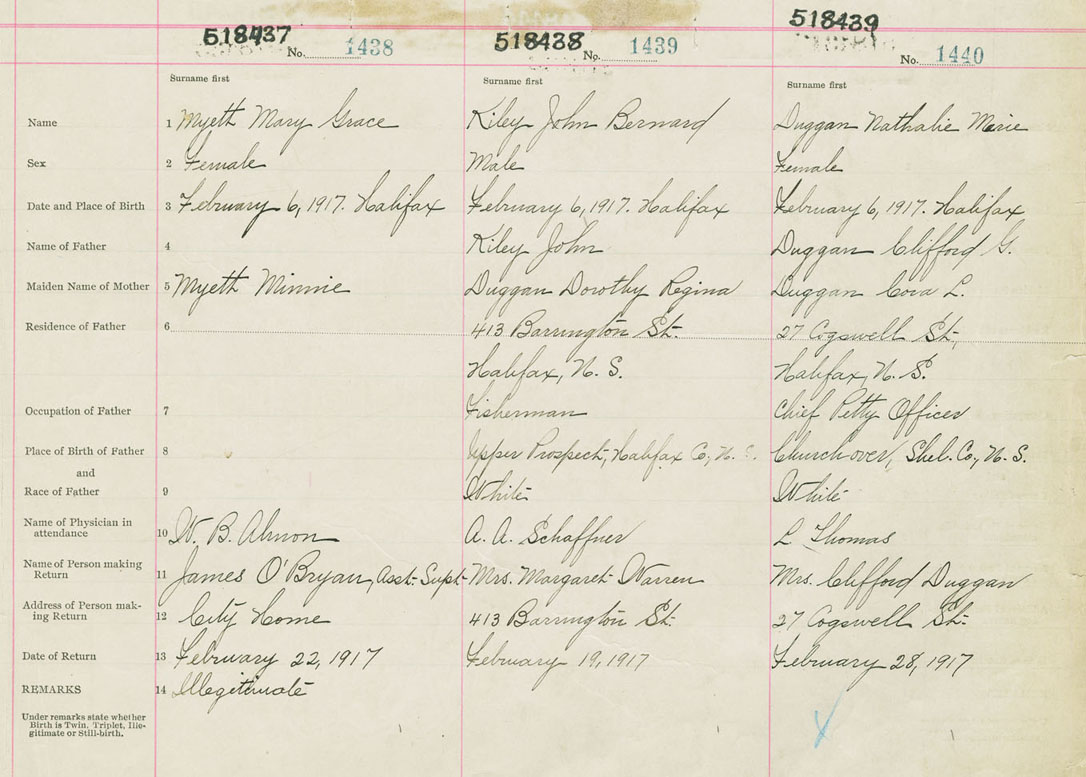 518437 518438 518439
No. 1438 No. 1439 No. 1440
Surname first Surname first Surname first
Name 1 Myeth Mary Grace Kiley John Bernard Duggan Nathalie Marie
Sex 2 Female Male Female
Date and Place of Birth 3 February 6, 1917. Halifax February 6, 1917. Halifax February 6, 1917. Halifax
Name of Father 4 Kiley John Duggan Clifford G.
Maiden Name of Mother 5 Myeth Minnie Duggan Dorothy Regina Duggan Cora L.
Residence of Father 6 413 Barrington St. 27 Cogswell St.,
Halifax, N. S. Halifax, N. S.
Occupation of Father 7 Fisherman Chief Petty Officer
Place of Birth of Father 8 Upper Prospect, Halifax Co., N. S. Churchover, Shel. Co., N. S.
and
Race of Father 9 White White
Name of Physician in
attendance 10 W. B. Almon A. A. Schaffner L Thomas
Name of Person making
Return 11 James O'Bryan, Asst. Supt. Mrs. Margaret Warren Mrs. Clifford Duggan
Address of Person mak-
ing Return 12 City Home 413 Barrington St. 27 Cogswell St.
Date of Return 13 February 22, 1917 February 19, 1917 February 28, 1917
REMARKS 14 Illegitimate
Under remarks state whether
Birth is Twin, Triplet, Ille-
gitimate or Still-birth.